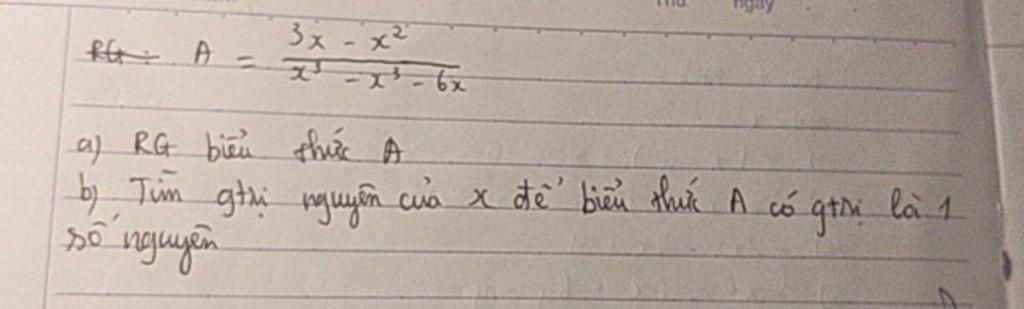 Thứ ngày
RG: A = \frac{3x - x^2}{x^3 - x^3 - 6x}
a) RG biểu thức A
b) Tìm gtrị nguyên của x để biểu thức A có gtrị là 1
số nguyên